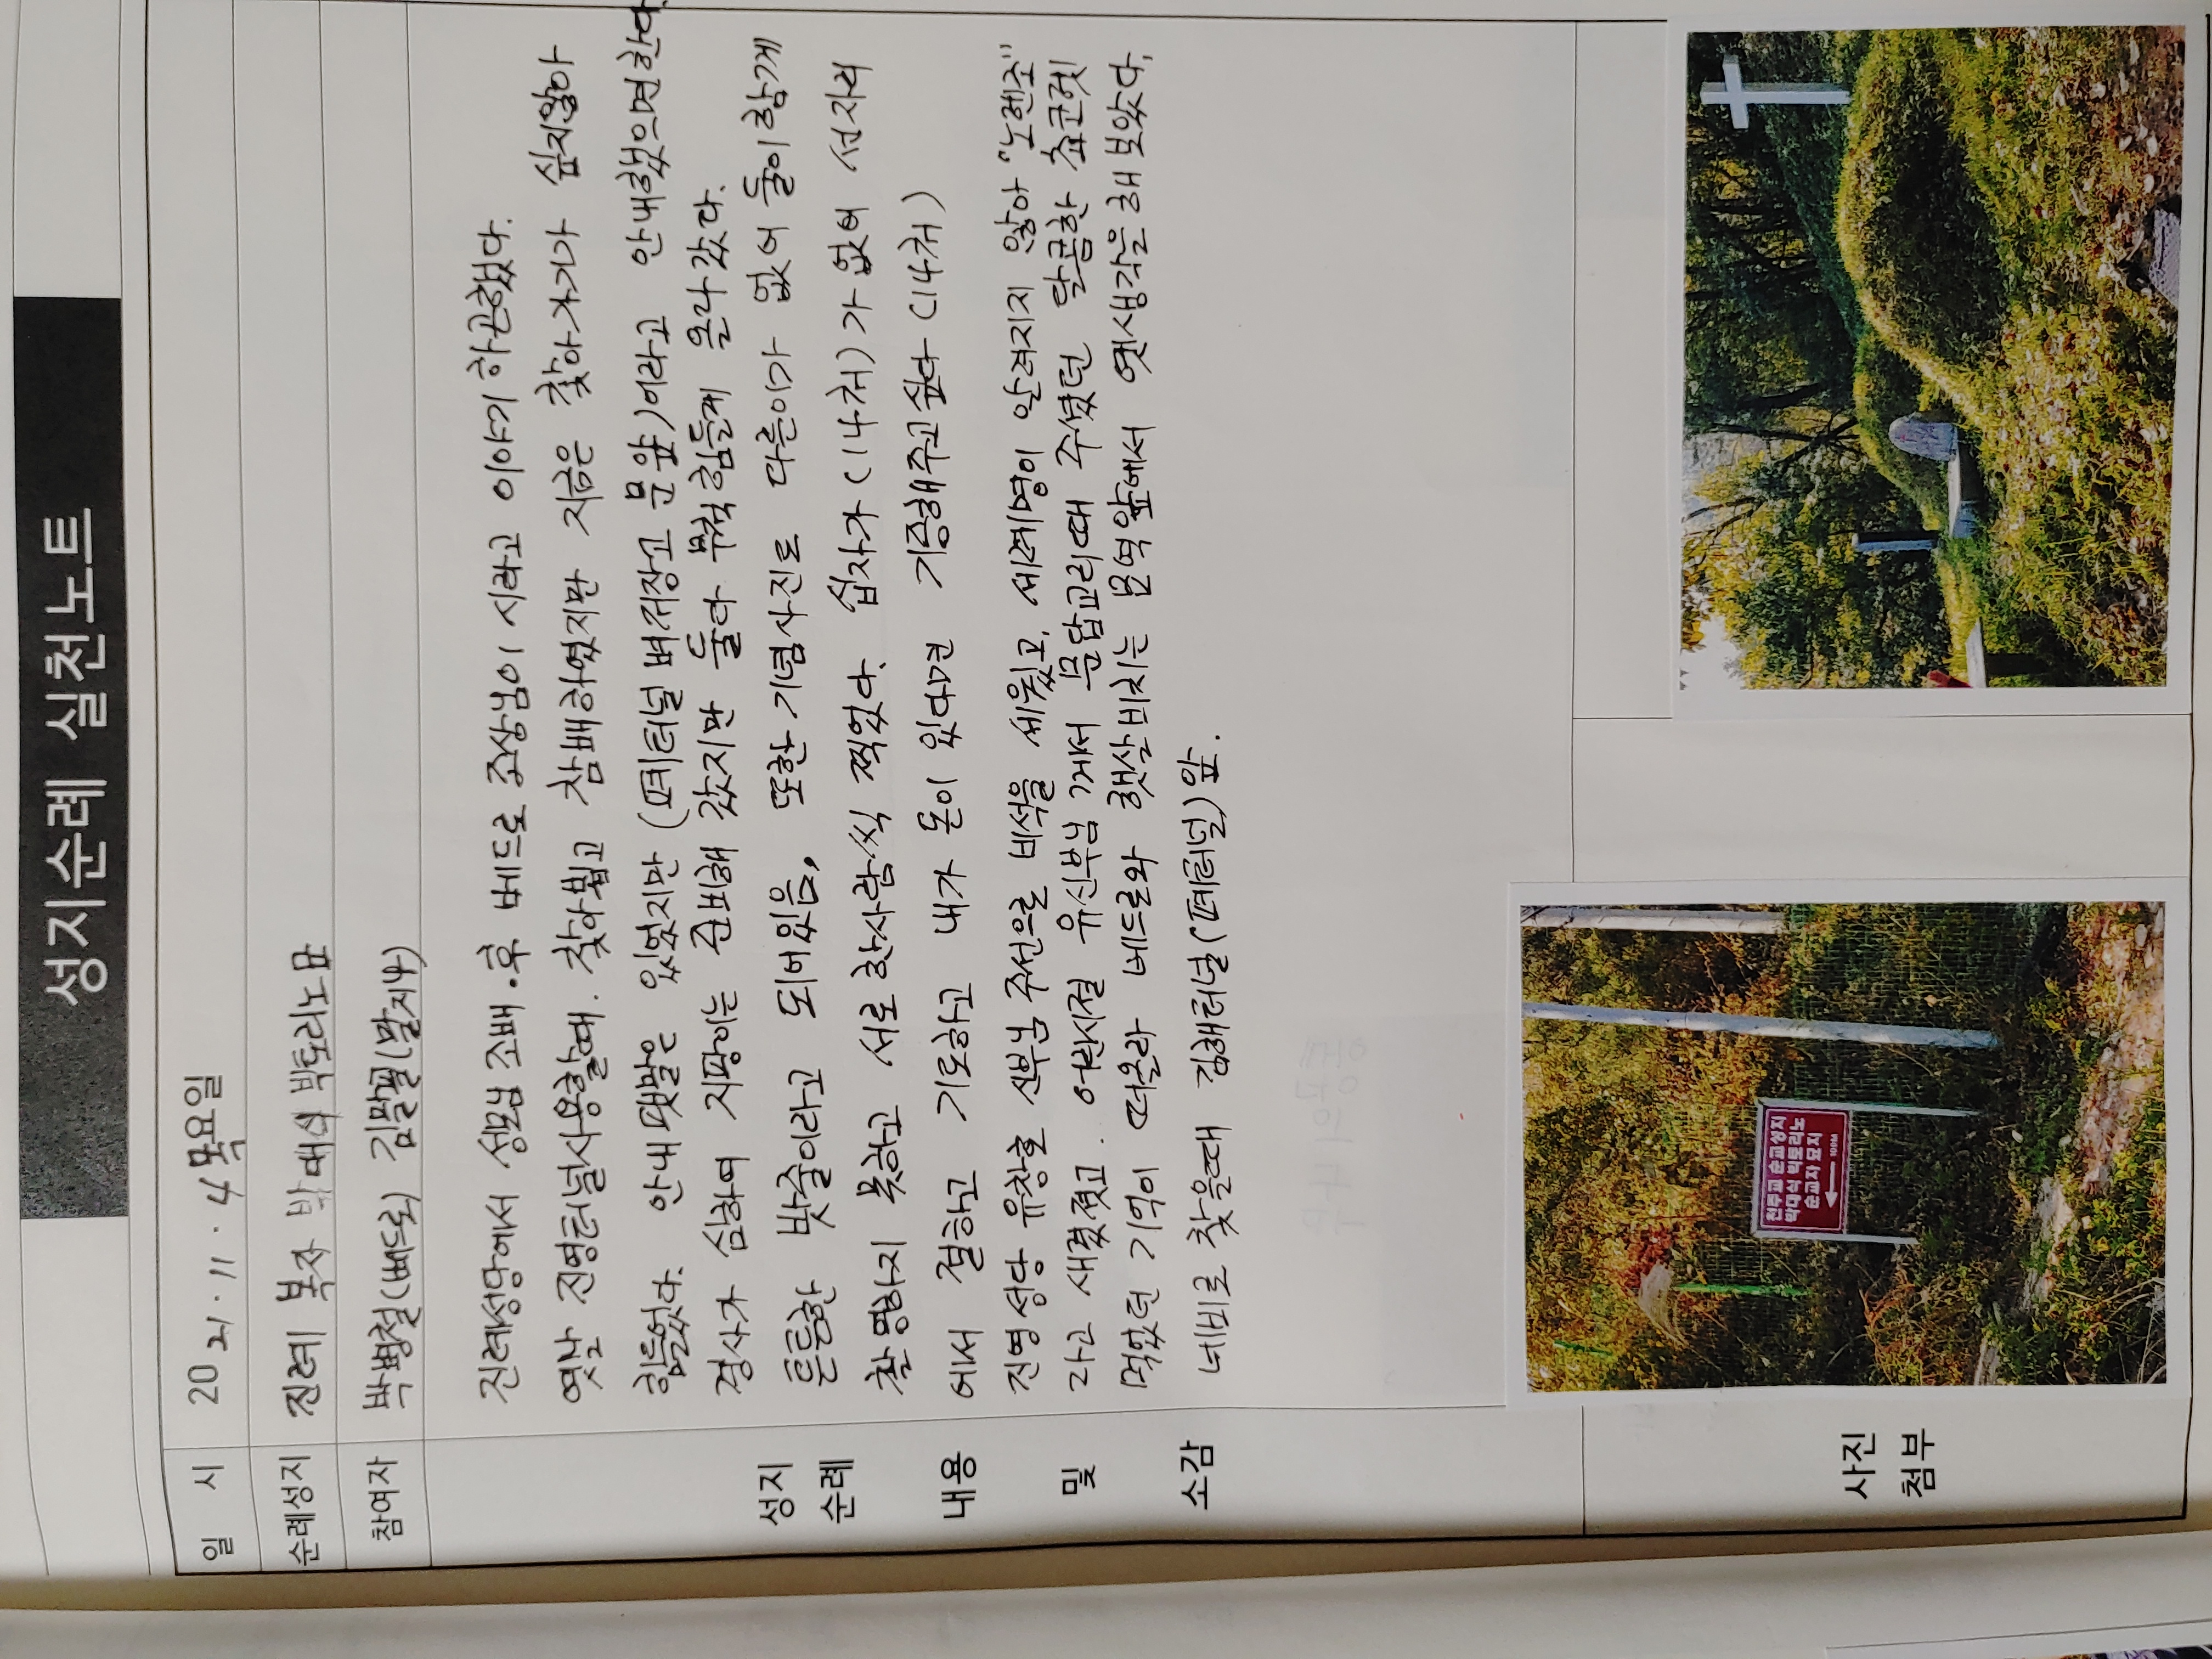 성지순례 실천노트
일 시 2021. 11. 4 목요일
순례성지 진례 복자 박대식 빅토리노묘
참여자 박병철(베드로) 김말필(말지나)
진례성당에서 성모님 조배.후 베드로 조상님이 시라고 이야기 하곤했다.
옛날 진영터널사용할때. 찾아뵙고 참배하였지만 지금은 찾아가기가 싶지않아
힘들었다. 안내팻말은 있었지만 (폐터널 벼저장고 문앞)이라고 안내했으면한다.
경사가 심하여 지팡이는 준비해 갔지만 둘다 무척힘들게 올라갔다.
성지
순례
내용
및
소감
튼튼한 밧줄이라고 되어있음, 또한 기념사진도 다른이가 없어 둘이함게
촬영하지 못하고 서로한사람씩 찍었다. 십자가(14처)가 없어 선자리
에서 절하고 기도하고 내가 돈이 있다면 기증해주고싶다 (14처)
진영성당 유창호 신부님 주선으로 비석을 세웠고, 세례명이 알려지지 않아 "노렌조"
라고 새겼졌고. 어린시절 유신부님 께서 문답교리때 주셨던 달콤한 쵸코렛
먹었던 기억이 떠올라 베드로와 햇살비치는 묘역앞에서 옛생각을해보았다.
네비로 찾을때 김해터널(폐터널)앞.
사진
첨부
천주교 순교성지
박대식 빅토리노
순교자 묘지
100M